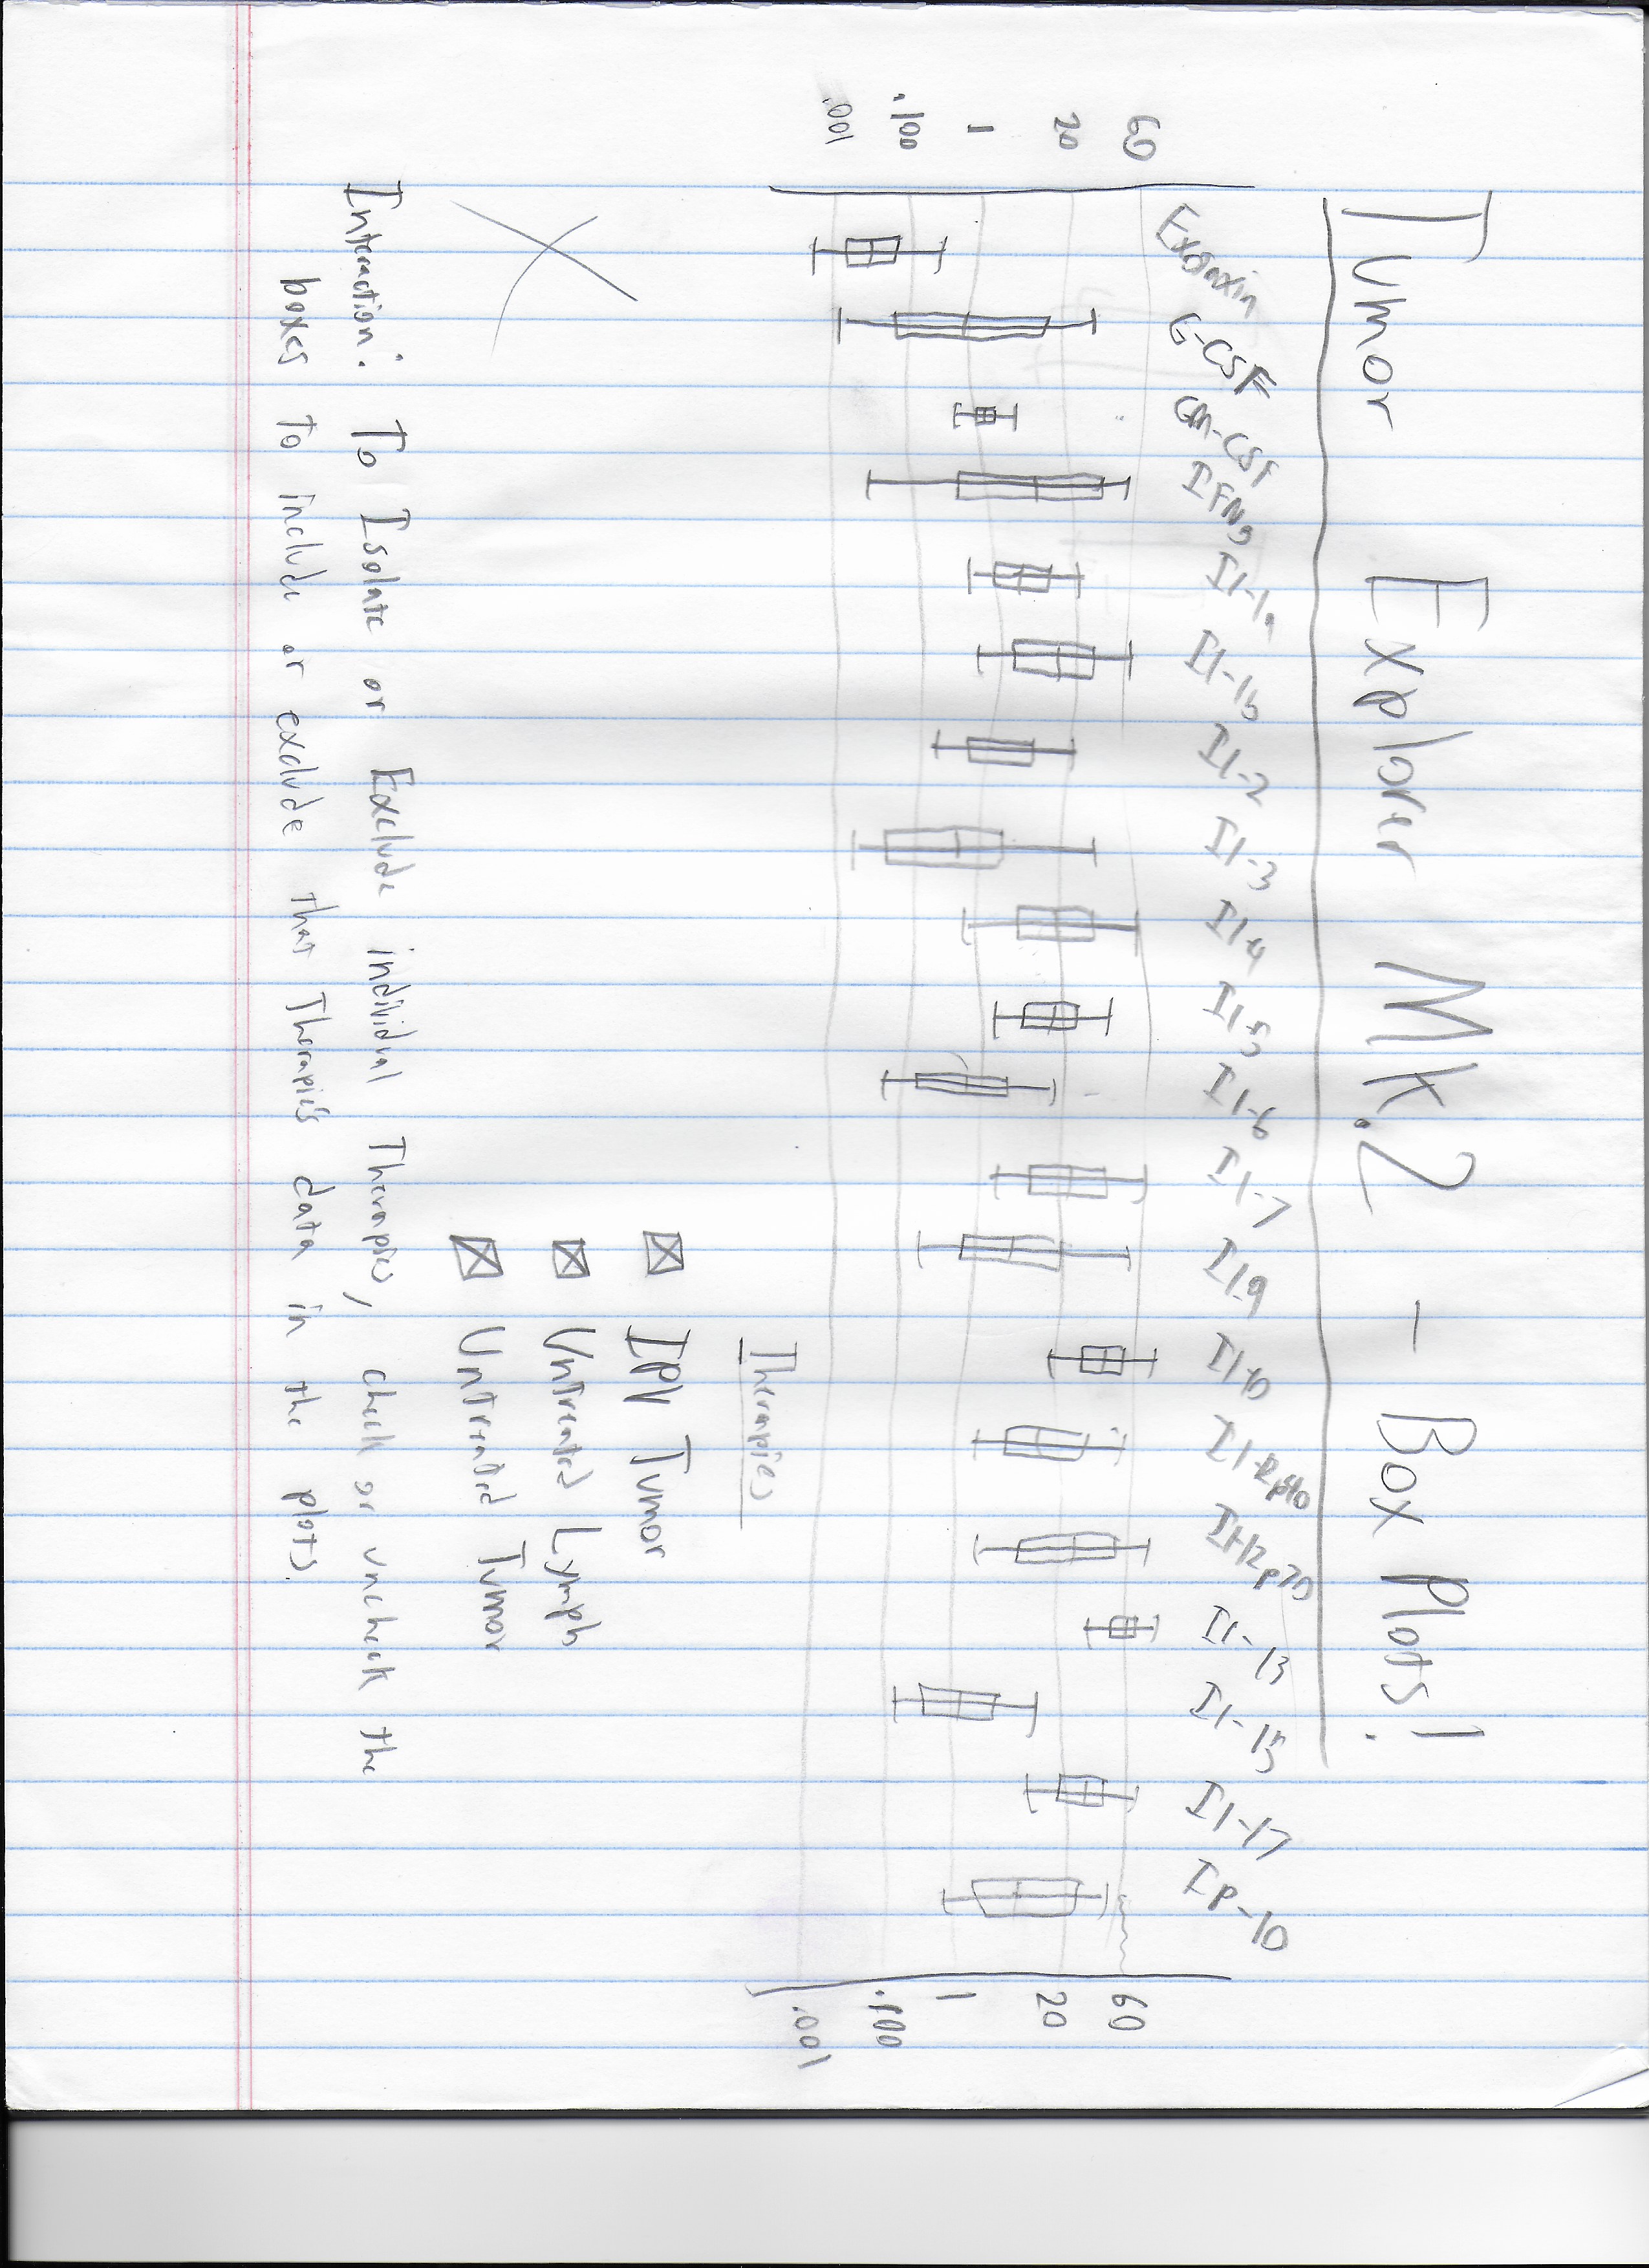 Tumor Explorer Mk.2 - Box Plots!
Exonxin G-CSF GM-CSF IFNg Il-1a Il-1b Il-2 Il-3 Il-4 Il-5 Il-6 Il-7 Il9 Il-10 Il-12p40 Il-12p70 Il-13 Il-15 Il-17 IP-10
60 60
20 20
1 1
.100 .100
.001 .001
Therapies
IPV Tumor
Untreated Lymph
Untreated Tumor
Interaction: To Isolate or Exclude individual Therapies, check or uncheck the
boxes to include or exclude that Therapie's data in the plots.